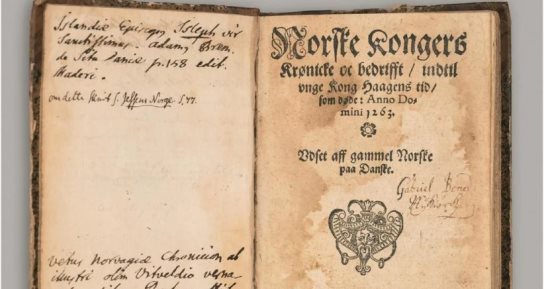 Islandiæ Episcop. Isleph vir
Sanctissimus. Adam Brem.
de Situ Daniæ p. 158 edit.
Maderi.
om dette skrift s. Jessens Norge S. 77.
vetus Norvagiæ Chronicion ab
illustri olim Vitveldio verna-
Norske Kongers
Krønicke oc bedrifft / indtil
vnge Kong Haagens tid /
som døde: Anno Do-
mini 1263.
Vdset aff gammel Norske
paa Danske.
Gabriel